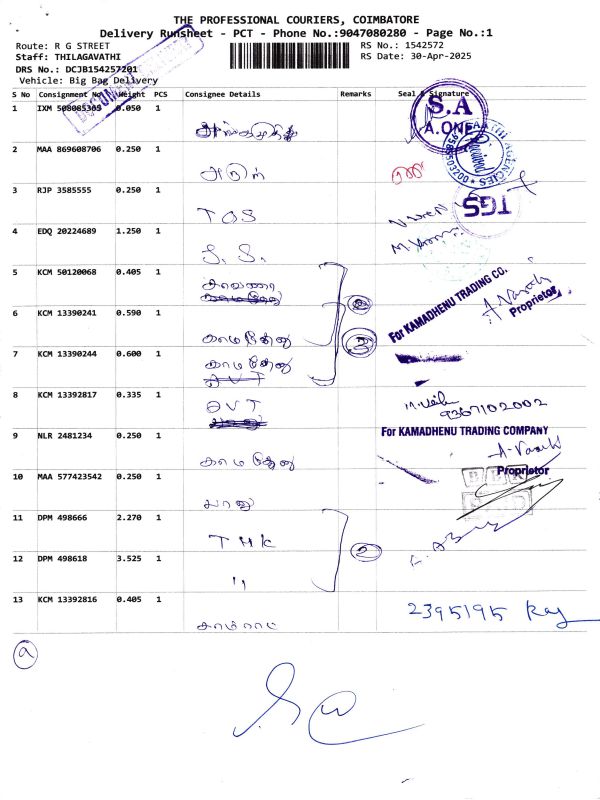 THE PROFESSIONAL COURIERS, COIMBATORE
Delivery Runsheet - PCT - Phone No.:9047080280 - Page No.:1
Route: R G STREET
RS No.: 1542572
Staff: THILAGAVATHI
RS Date: 30-Apr-2025
DRS No.: DCJB154257201
Vehicle: Big Bag Delivery
S No Consignment No Weight PCS Consignee Details Remarks Seal & Signature
1 IXM 508085303 0.050 1
S.A
A.ONE
2 MAA 869608706 0.250 1 அருள்
AGENCIES
3 RJP 3585555 0.250 1 TGS
TGS
Naveen
4 EDQ 20224689 1.250 1 S. S.
5 KCM 50120068 0.405 1
For KAMADHENU TRADING CO.
Proprietor
6 KCM 13390241 0.590 1 காமதேனு
3
7 KCM 13390244 0.600 1 காமதேனு
8 KCM 13392817 0.335 1 OVT
9367102002
For KAMADHENU TRADING COMPANY
9 NLR 2481234 0.250 1 காமதேனு
Proprietor
10 MAA 577423542 0.250 1 பானு
11 DPM 498666 2.270 1 TMK
2
12 DPM 498618 3.525 1 "
13 KCM 13392816 0.405 1
2395195 Raj
a